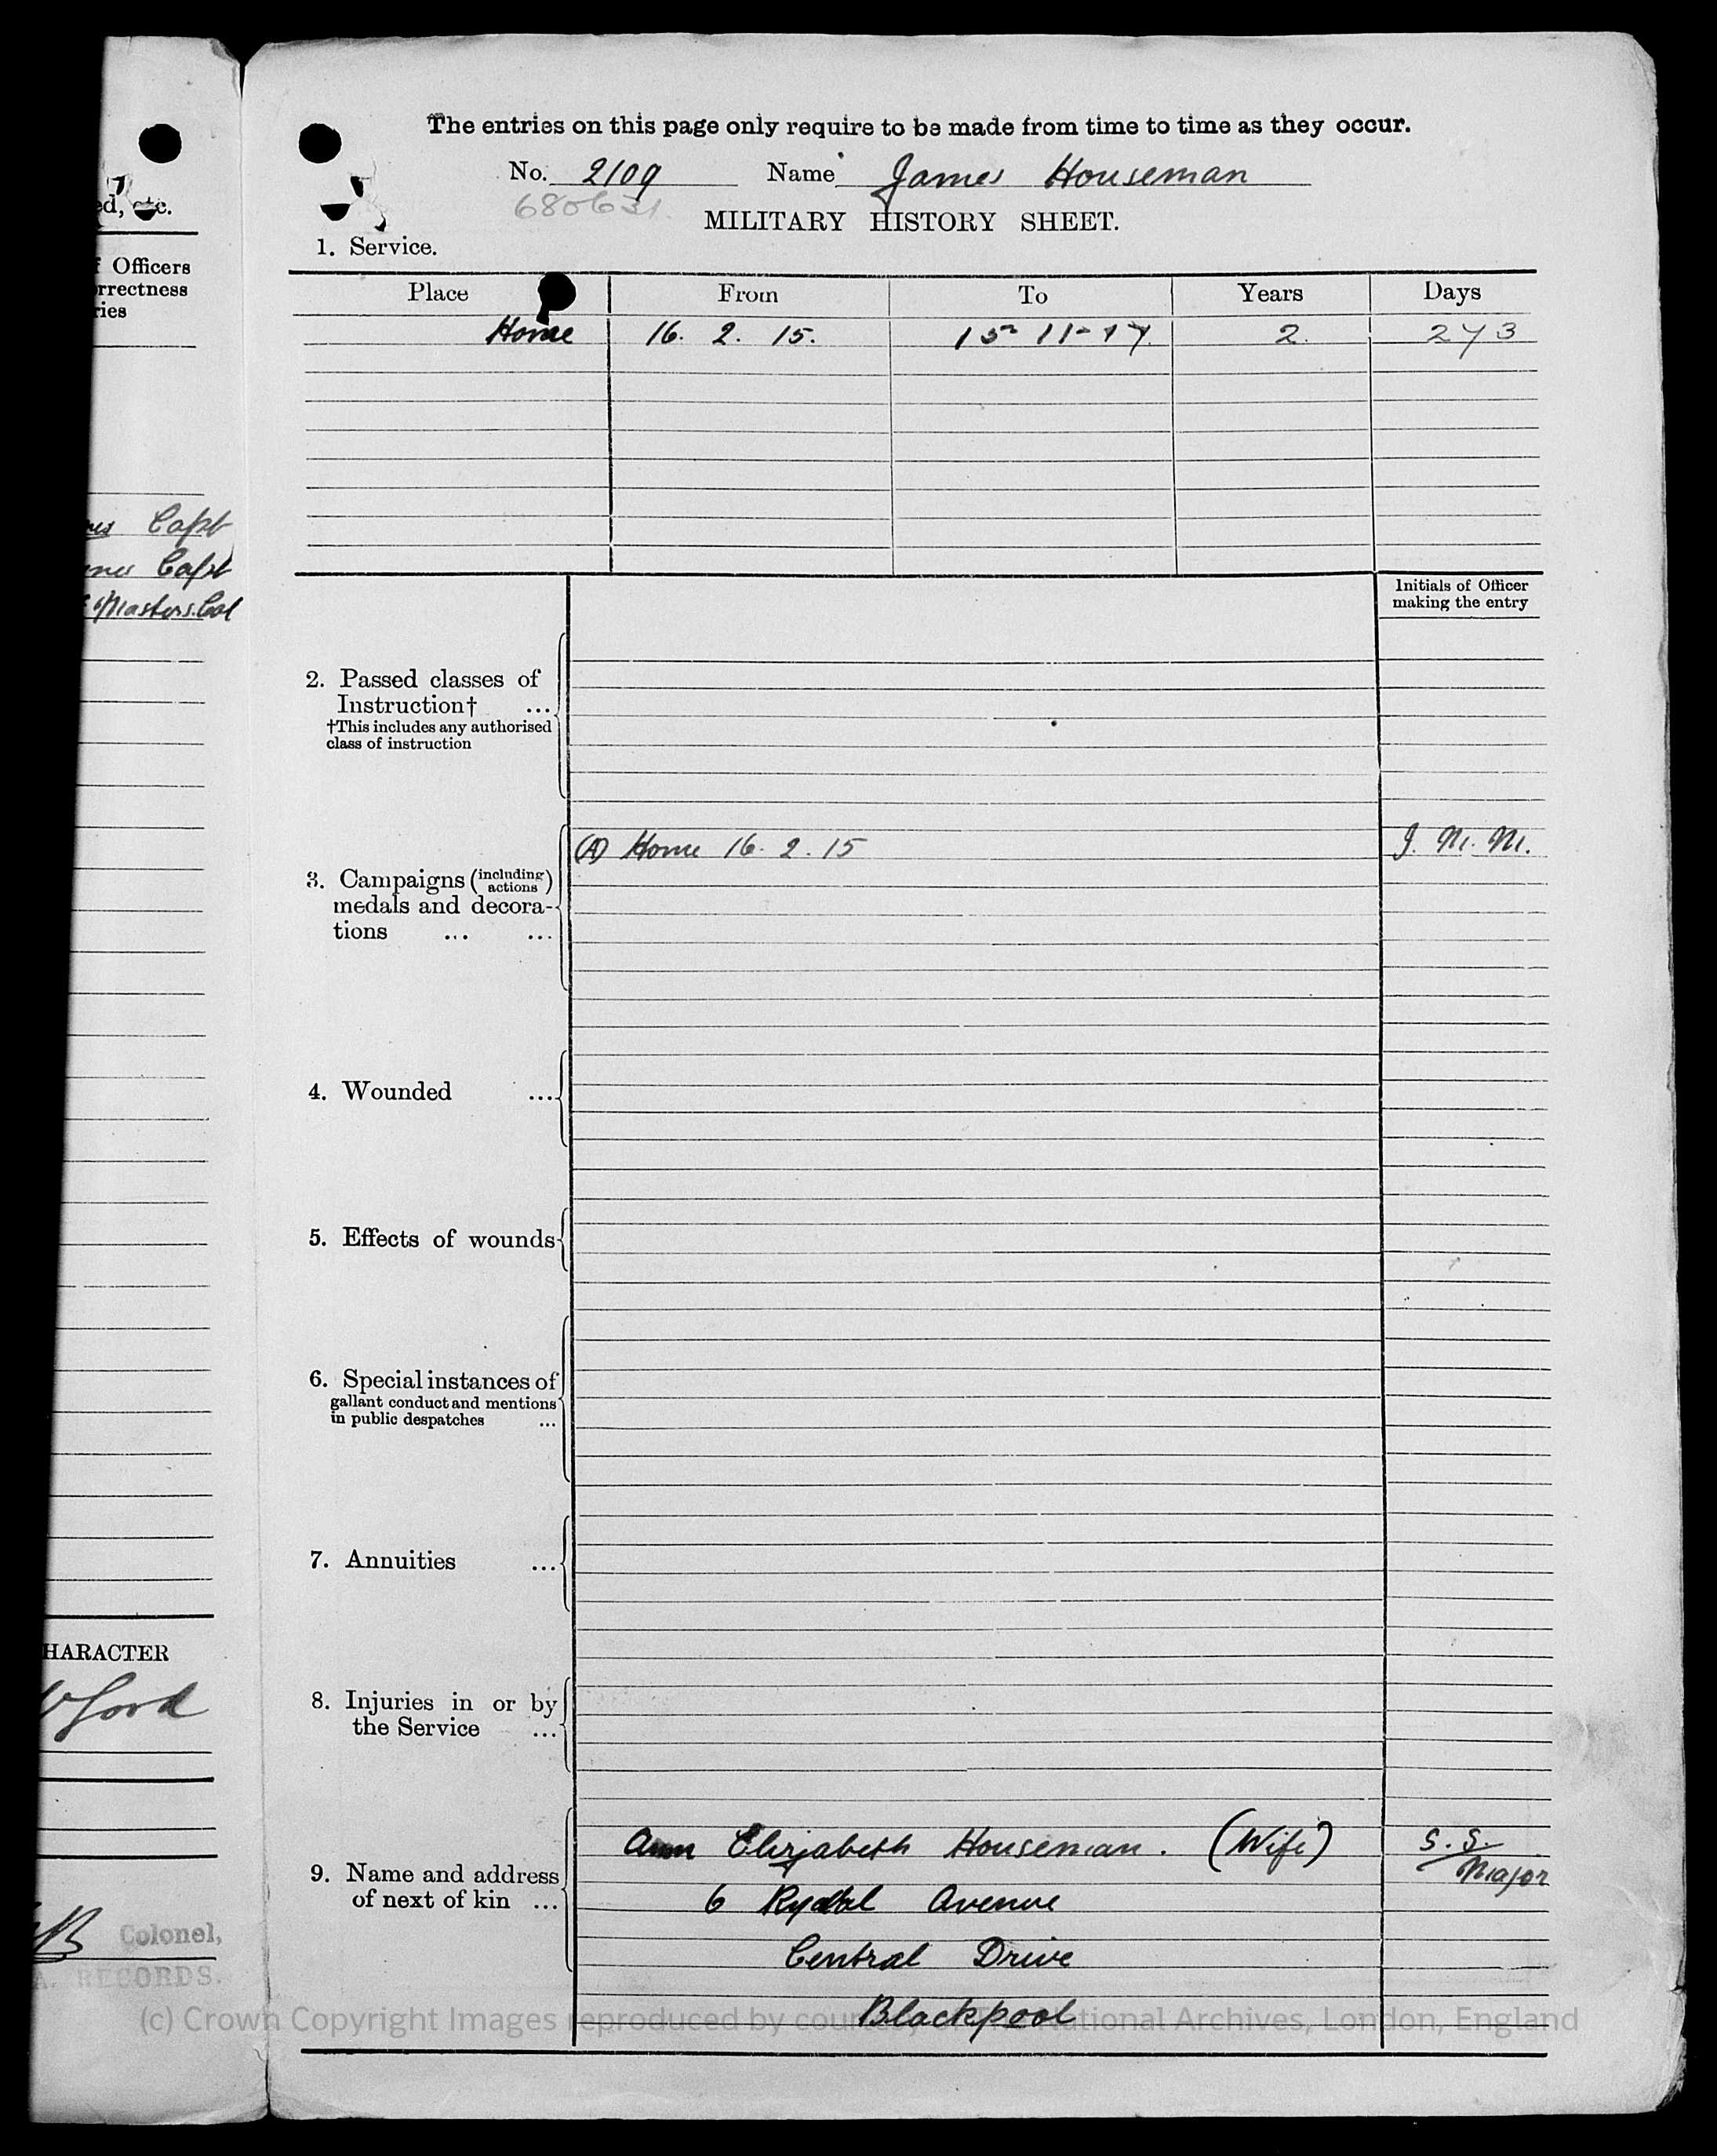 ed, etc.
f Officers
rrectness
ries
Capt
Capt
Masters. Col
HARACTER
V Good
Colonel,
A. RECORDS.
The entries on this page only require to be made from time to time as they occur.
No. 2109 Name James Houseman
680631.
MILITARY HISTORY SHEET.
1. Service.
Place From To Years Days
Home 16. 2. 15. 15-11-17. 2. 273
Initials of Officer
making the entry
2. Passed classes of
Instruction† ...
†This includes any authorised
class of instruction
(A) Home 16. 2. 15 J. M. M.
3. Campaigns (including actions)
medals and decora-
tions ... ...
4. Wounded ...
5. Effects of wounds
6. Special instances of
gallant conduct and mentions
in public despatches ...
7. Annuities ...
8. Injuries in or by
the Service ...
9. Name and address
of next of kin ...
Ann Elizabeth Houseman. (Wife) S. S.
Major
6 Rydal Avenue
Central Drive
Blackpool
(c) Crown Copyright Images reproduced by courtesy of The National Archives, London, England